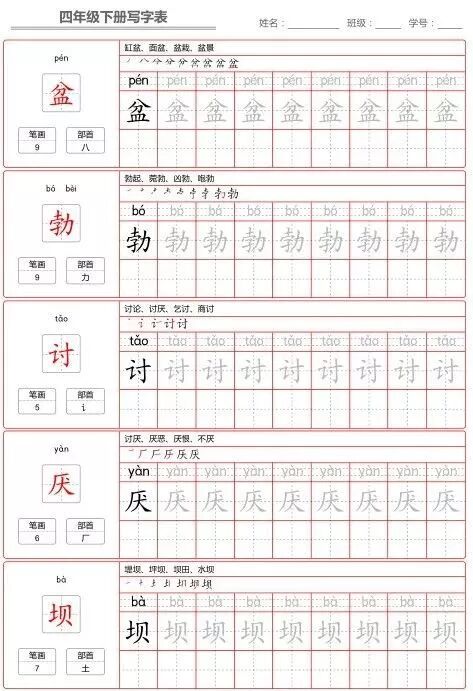 四年级下册写字表 姓名：________ 班级：____ 学号：____
pén
盆
笔画 部首
9 八
缸盆、面盆、盆栽、盆景
pén pén pén pén pén pén pén pén pén
盆 盆 盆 盆 盆 盆 盆 盆 盆
bó bèi
勃
笔画 部首
9 力
勃起、菀勃、凶勃、咆勃
bó bó bó bó bó bó bó bó bó
勃 勃 勃 勃 勃 勃 勃 勃 勃
tǎo
讨
笔画 部首
5 讠
讨论、讨厌、乞讨、商讨
tǎo tǎo tǎo tǎo tǎo tǎo tǎo tǎo tǎo
讨 讨 讨 讨 讨 讨 讨 讨 讨
yàn
厌
笔画 部首
6 厂
讨厌、厌恶、厌恨、不厌
yàn yàn yàn yàn yàn yàn yàn yàn yàn
厌 厌 厌 厌 厌 厌 厌 厌 厌
bà
坝
笔画 部首
7 土
堤坝、坪坝、坝田、水坝
bà bà bà bà bà bà bà bà bà
坝 坝 坝 坝 坝 坝 坝 坝 坝